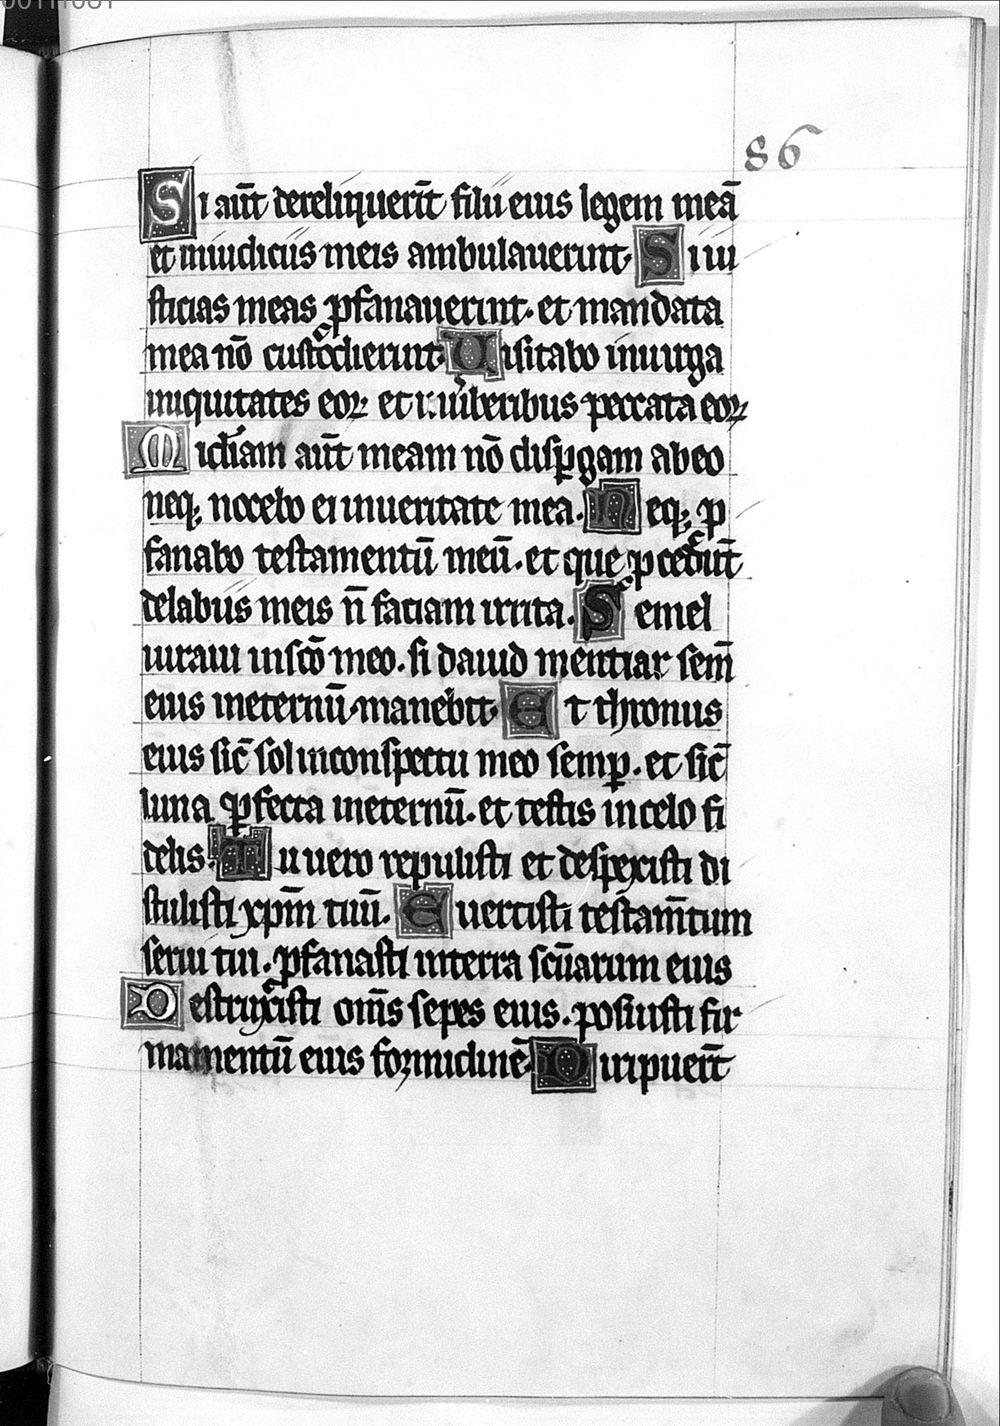 86
Si aūt dereliquerīt filii eius legem meā
et iniudiciis meis ambulauerint. Si iu
sticias meas ꝓfanauerint. et mandata
mea nō custodierint. Uisitabo inuirga
iniquitates eoꝝ et inuerberibus peccata eoꝝ
Miam aūt meam nō dispgam abeo
neqꝫ nocebo ei inueritate mea. Neqꝫ ꝓ
fanabo testamentū meū. et que ꝓcedūt
delabiis meis n̄ faciam irrita. Semel
iuraui insc̄o meo. si dauid mentiar sem̄
eius ineternū manebit. Et thronus
eius sic̄ sol inconspectu meo semꝑ. et sic̄
luna ꝑfecta ineternū. et testis incelo fi
delis. Tu uero repulisti et despexisti di
stulisti xp̄m tuū. Euertisti testam̄tum
serui tui. ꝓfanasti interra sc̄uarium eius
Destruxisti om̄s sepes eius. posuisti fir
mamentū eius formidinē Diripuer̄t